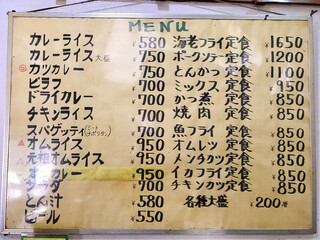 MENU
カレーライス ¥580
カレーライス大盛 ¥750
カツカレー ¥750
ピラフ ¥700
ドライカレー ¥700
チキンライス ¥700
スパゲッティ(ミート ナポリタン) ¥700
オムライス ¥950
元祖オムライス ¥950
カレー ¥950
サラダ ¥700
とん汁 ¥580
ビール ¥550
海老フライ定食 ¥1650
ポークソテー定食 ¥1200
とんかつ定食 ¥1100
ミックス定食 ¥950
かつ煮定食 ¥850
焼肉定食 ¥850
魚フライ定食 ¥850
オムレツ定食 ¥850
メンチカツ定食 ¥850
イカフライ定食 ¥850
チキンカツ定食 ¥850
各種大盛 ¥200増